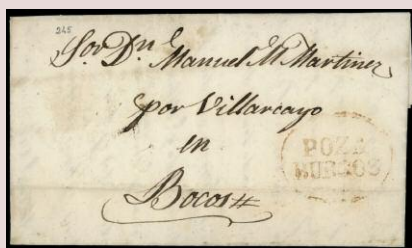 245
Sor. Dn. Manuel M Martinez
por Villarcayo
en
Bocos
POZA
BURGOS